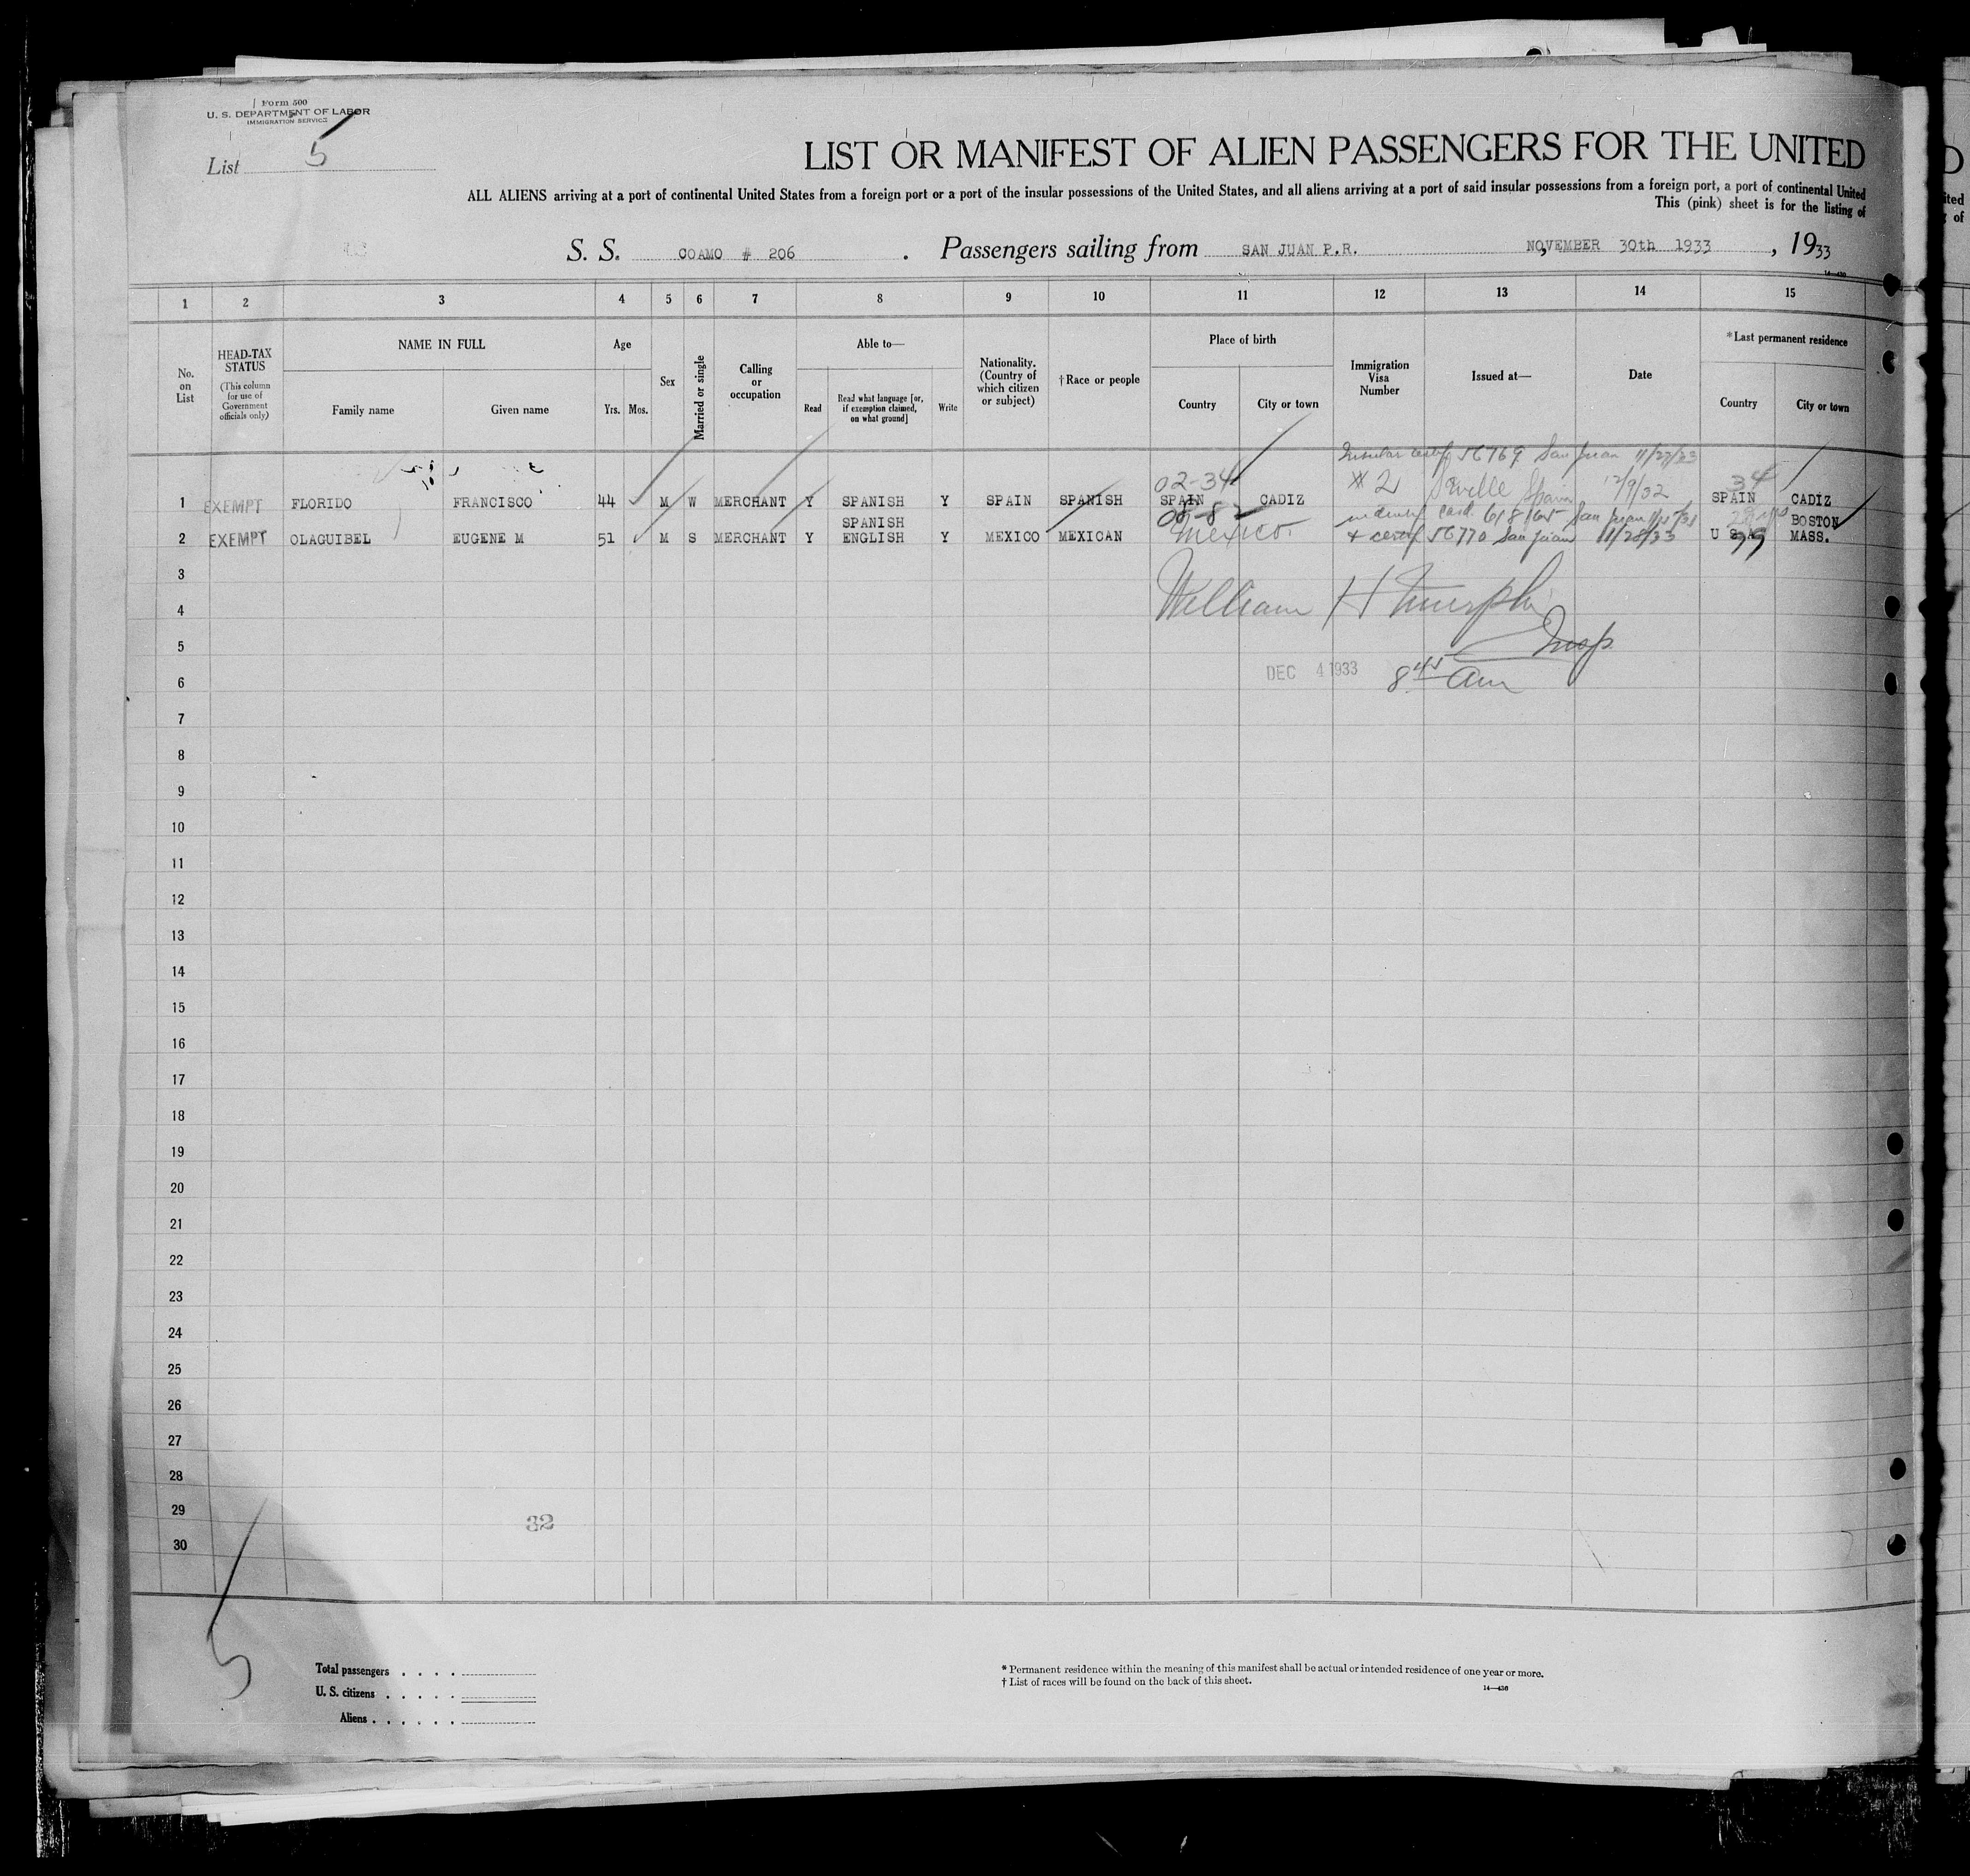 Form 500
U. S. DEPARTMENT OF LABOR
IMMIGRATION SERVICE
List 5
LIST OR MANIFEST OF ALIEN PASSENGERS FOR THE UNITED
ALL ALIENS arriving at a port of continental United States from a foreign port or a port of the insular possessions of the United States, and all aliens arriving at a port of said insular possessions from a foreign port, a port of continental United
This (pink) sheet is for the listing of
S. S. COAMO # 206 . Passengers sailing from SAN JUAN P.R. NOVEMBER 30th 1933 , 1933
14—430
1 2 3 4 5 6 7 8 9 10 11 12 13 14 15
No. on List
HEAD-TAX STATUS (This column for use of Government officials only)
NAME IN FULL
Family name Given name
Age
Yrs. Mos.
Sex
Married or single
Calling or occupation
Able to—
Read
Read what language [or, if exemption claimed, on what ground]
Write
Nationality. (Country of which citizen or subject)
†Race or people
Place of birth
Country City or town
Immigration Visa Number
Issued at—
Date
*Last permanent residence
Country City or town
Insular certf 56769 San Juan 11/27/33
02-34 # 2 Seville Spain 12/9/32 34
1 EXEMPT FLORIDO FRANCISCO 44 M W MERCHANT Y SPANISH Y SPAIN SPANISH SPAIN CADIZ SPAIN CADIZ
SPANISH card 618165 San Juan BOSTON
2 EXEMPT OLAGUIBEL EUGENE M 51 M S MERCHANT Y ENGLISH Y MEXICO MEXICAN Mexico. + certf 56770 San Juan 11/28/33 U S A MASS.
3
4
William H Murphy
5
Insp.
6
DEC 4 1933 8 45 am
7
8
9
10
11
12
13
14
15
16
17
18
19
20
21
22
23
24
25
26
27
28
29
32
30
5
Total passengers . . . .
U. S. citizens . . . . .
Aliens . . . . . .
* Permanent residence within the meaning of this manifest shall be actual or intended residence of one year or more.
† List of races will be found on the back of this sheet.
14—430